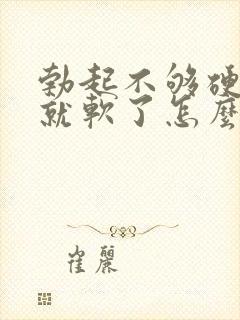 勃起不够硬
就軟了怎麼
崔麗